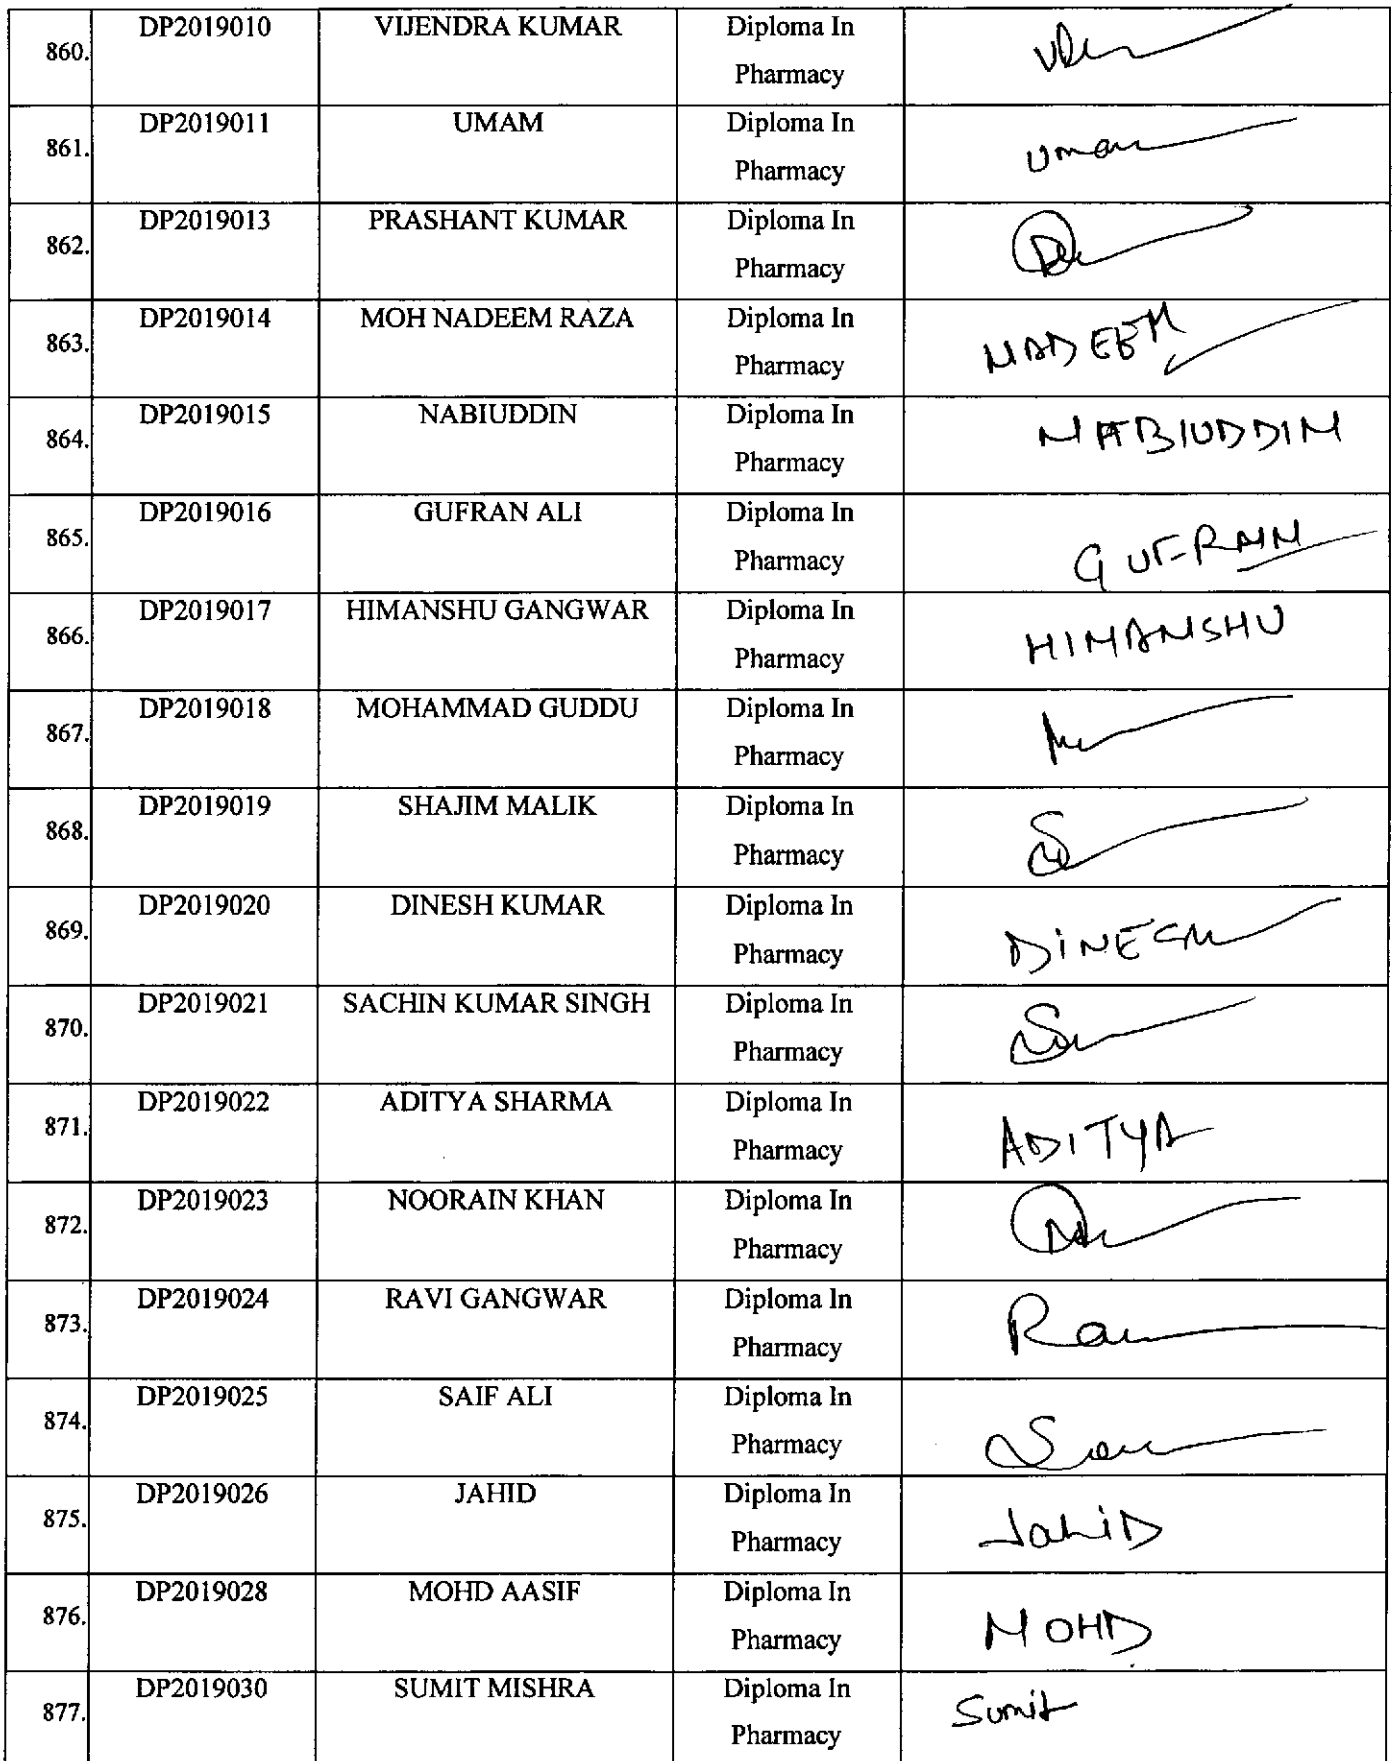 860. DP2019010 VIJENDRA KUMAR Diploma In
Pharmacy
861. DP2019011 UMAM Diploma In
Pharmacy
862. DP2019013 PRASHANT KUMAR Diploma In
Pharmacy
863. DP2019014 MOH NADEEM RAZA Diploma In
Pharmacy NADEEM
864. DP2019015 NABIUDDIN Diploma In
Pharmacy NABIUDDIN
865. DP2019016 GUFRAN ALI Diploma In
Pharmacy GUFRAN
866. DP2019017 HIMANSHU GANGWAR Diploma In
Pharmacy HIMANSHU
867. DP2019018 MOHAMMAD GUDDU Diploma In
Pharmacy
868. DP2019019 SHAJIM MALIK Diploma In
Pharmacy
869. DP2019020 DINESH KUMAR Diploma In
Pharmacy DINESH
870. DP2019021 SACHIN KUMAR SINGH Diploma In
Pharmacy
871. DP2019022 ADITYA SHARMA Diploma In
Pharmacy ADITYA
872. DP2019023 NOORAIN KHAN Diploma In
Pharmacy
873. DP2019024 RAVI GANGWAR Diploma In
Pharmacy
874. DP2019025 SAIF ALI Diploma In
Pharmacy
875. DP2019026 JAHID Diploma In
Pharmacy JahiD
876. DP2019028 MOHD AASIF Diploma In
Pharmacy MOHD
877. DP2019030 SUMIT MISHRA Diploma In
Pharmacy Sumit